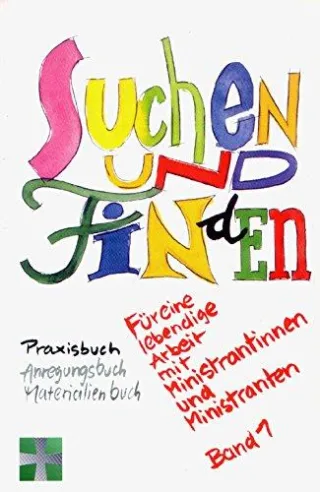 Suchen
UND
FINdEN
Praxisbuch
Anregungsbuch
Materialienbuch
Für eine
lebendige
Arbeit
mit
Ministrantinnen
und
Ministranten
Band 1